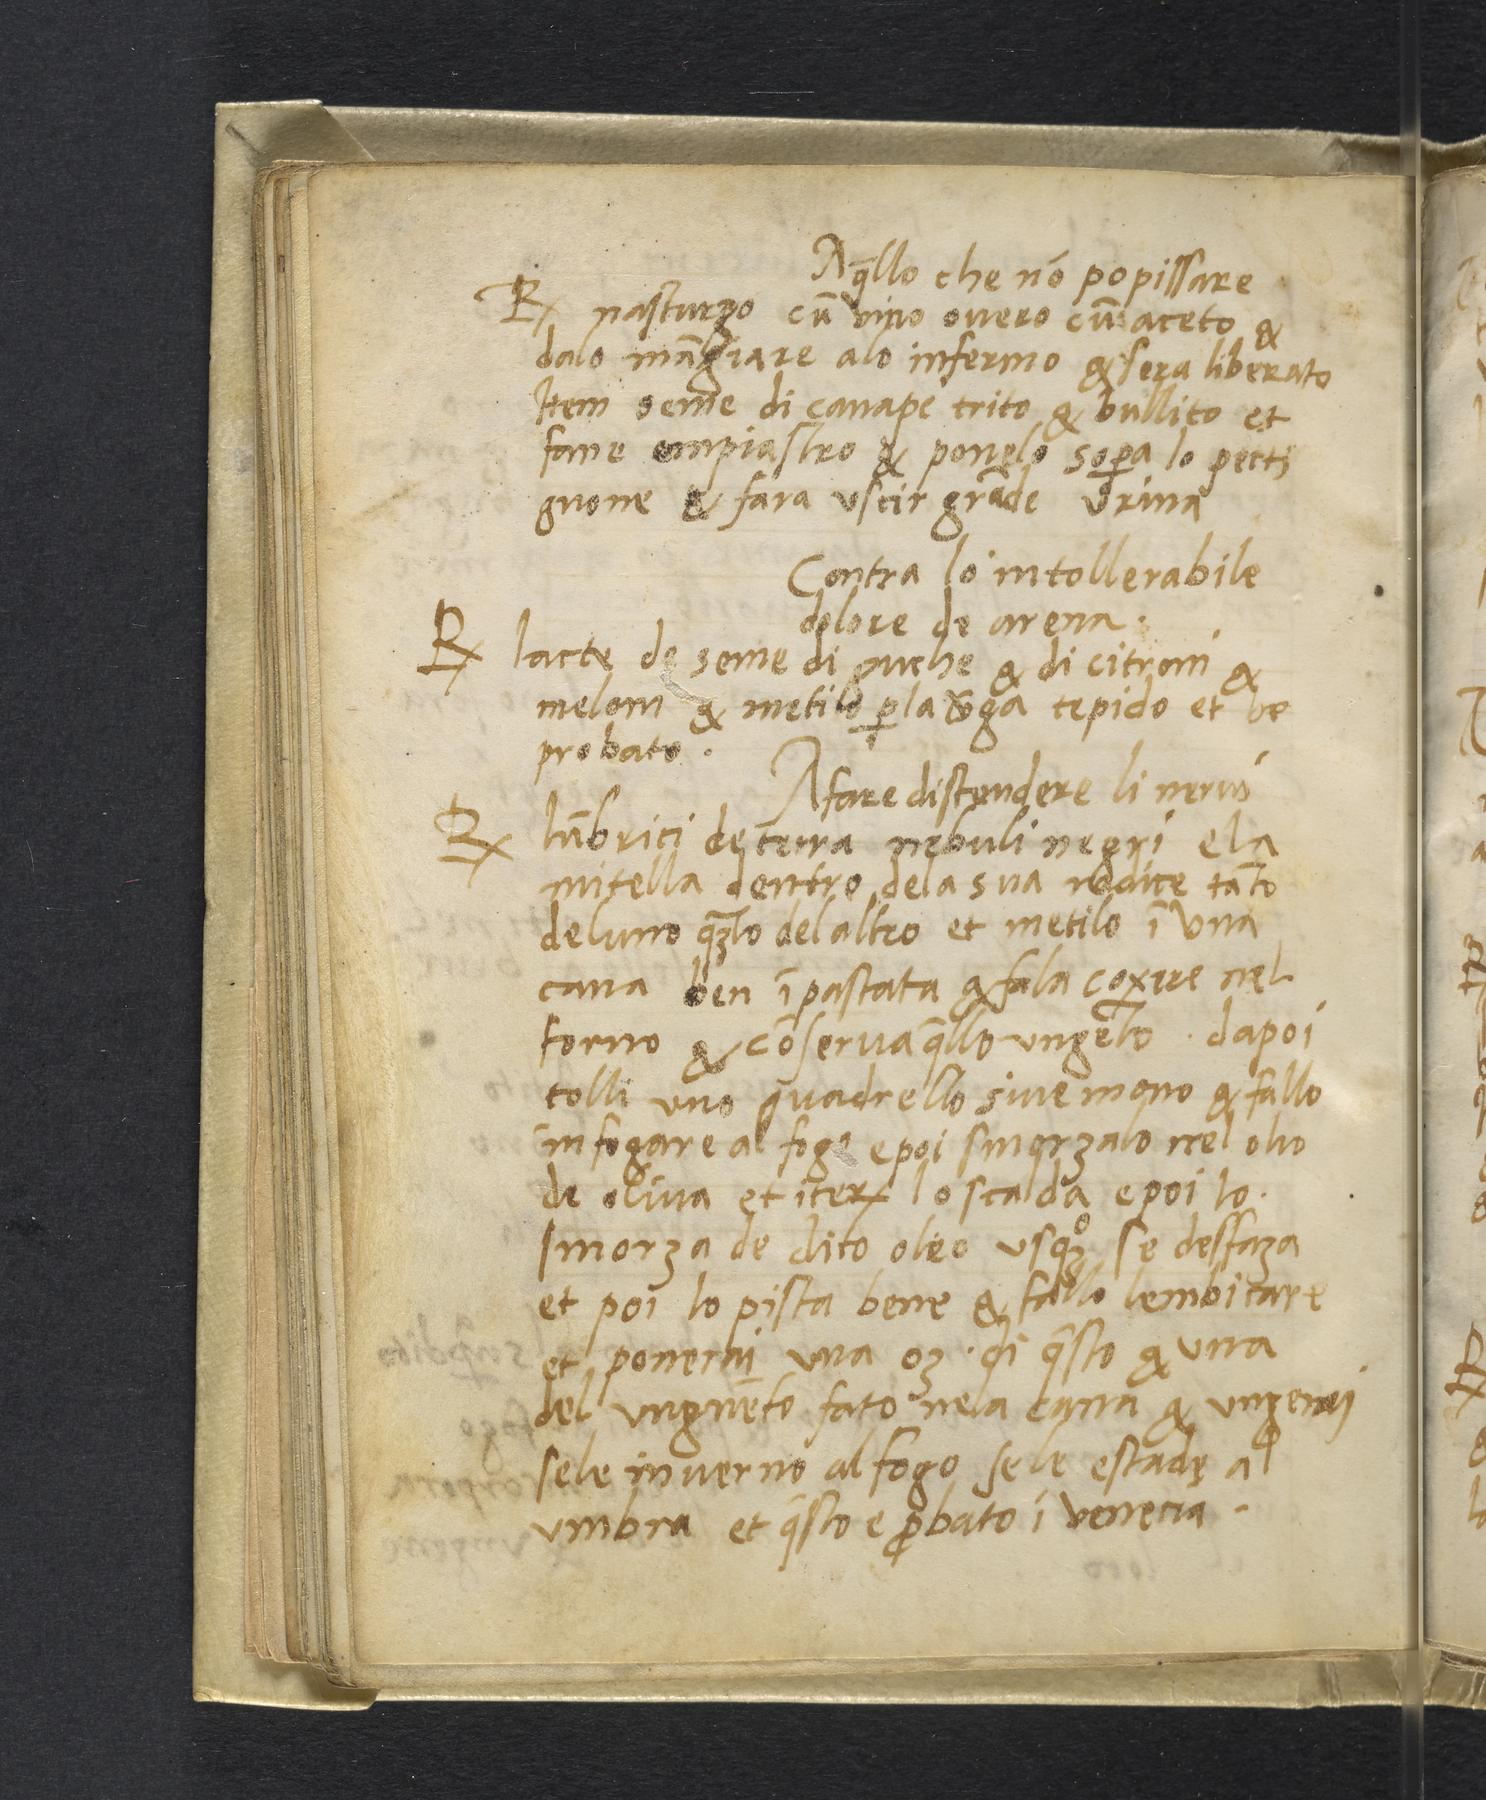 A q̄llo che nō po pissare
℞ nasturzo cū vino overo cū aceto &
dalo māgiare alo infermo & sera liberato
Item seme di canape trito & bullito et
fane empiastro & ponelo sop̄a lo pecti
gnone & fara uscir grāde urina
Contra lo intollerabile
dolore de arena.
℞ lacte de seme di zuche & di citroni &
meloni & metilo ꝑ la v̄ga tepido et he
probato.
A fare distendere li nervi
℞ lūbrici de terra nebuli negri e la
mitella dentro dela sua radice tāto
del uno qz̄to del altro et metilo ī una
cana ben īpastata & fala coxere nel
forno & cōserva q̄llo ungēto. dapoi
tolli uno quadrello sive mono & fallo
infogare al fogo e poi smorzalo nel olio
de oliva et iterꝝ lo scalda e poi lo
smorza de dito oleo usqꝫ° se desfaza
et poi lo pista bene & fallo lembicare
et ponerai una oꝫ. di q̄sto & una
del unguēto fato nela canna & ungerai
se le inverno al fogo se le estade al
umbra et q̄sto e ꝓbato ī venecia.